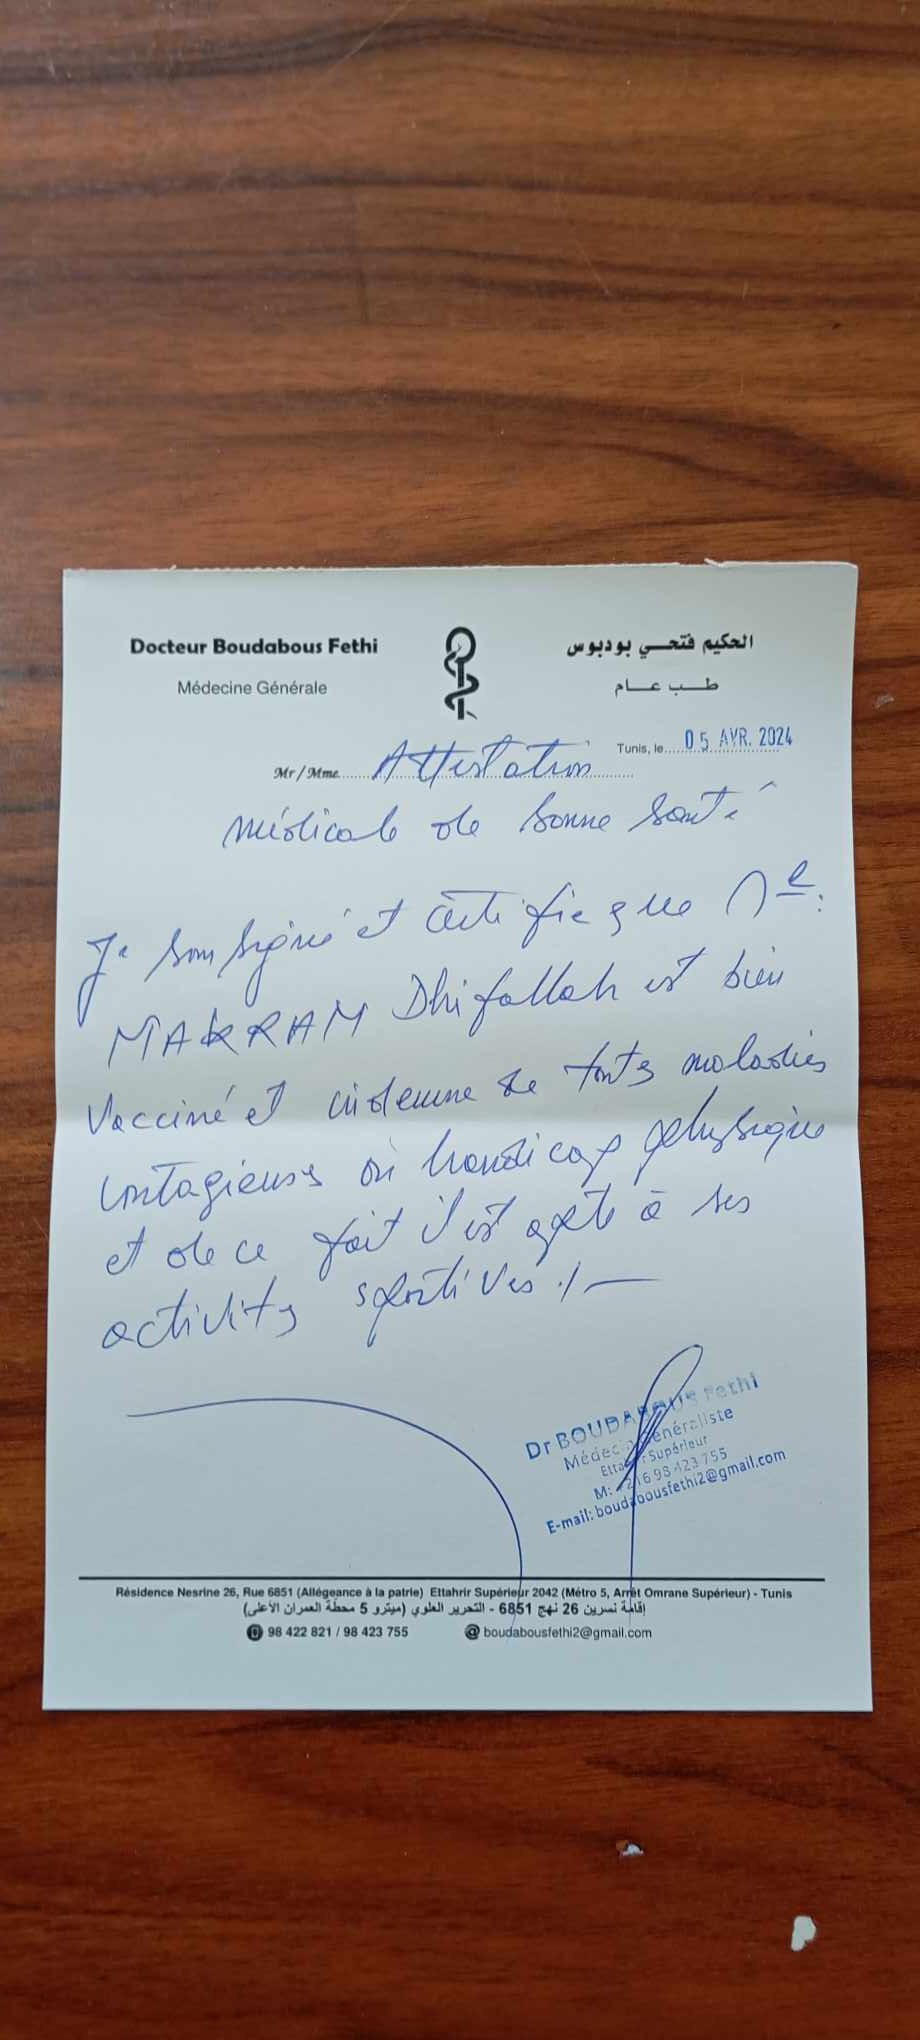 Docteur Boudabous Fethi
Médecine Générale
الحكيم فتحي بودبوس
طب عام
Tunis, le 05 AVR. 2024
Mr / Mme. Attestation
médicale de bonne santé
Je soussigné et certifie que
MAKRAM Dhifallah est bien
Vacciné et indemne de toutes maladies
contagieuses ou handicap physique
et de ce fait il est apte à ses
activités sportives ./—
Dr BOUDABOUS Fethi
Médecin Généraliste
Ettahrir Supérieur
M: +216 98 423 755
E-mail: boudabousfethi2@gmail.com
Résidence Nesrine 26, Rue 6851 (Allégeance à la patrie) Ettahrir Supérieur 2042 (Métro 5, Arrêt Omrane Supérieur) - Tunis
إقامة نسرين 26 نهج 6851 - التحرير العلوي (ميترو 5 محطة العمران الأعلى)
98 422 821 / 98 423 755 @ boudabousfethi2@gmail.com